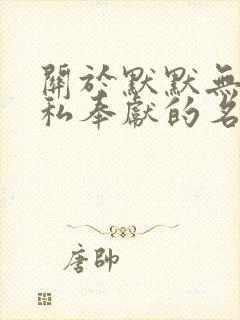 關於默默無
私奉獻的名
唐帥